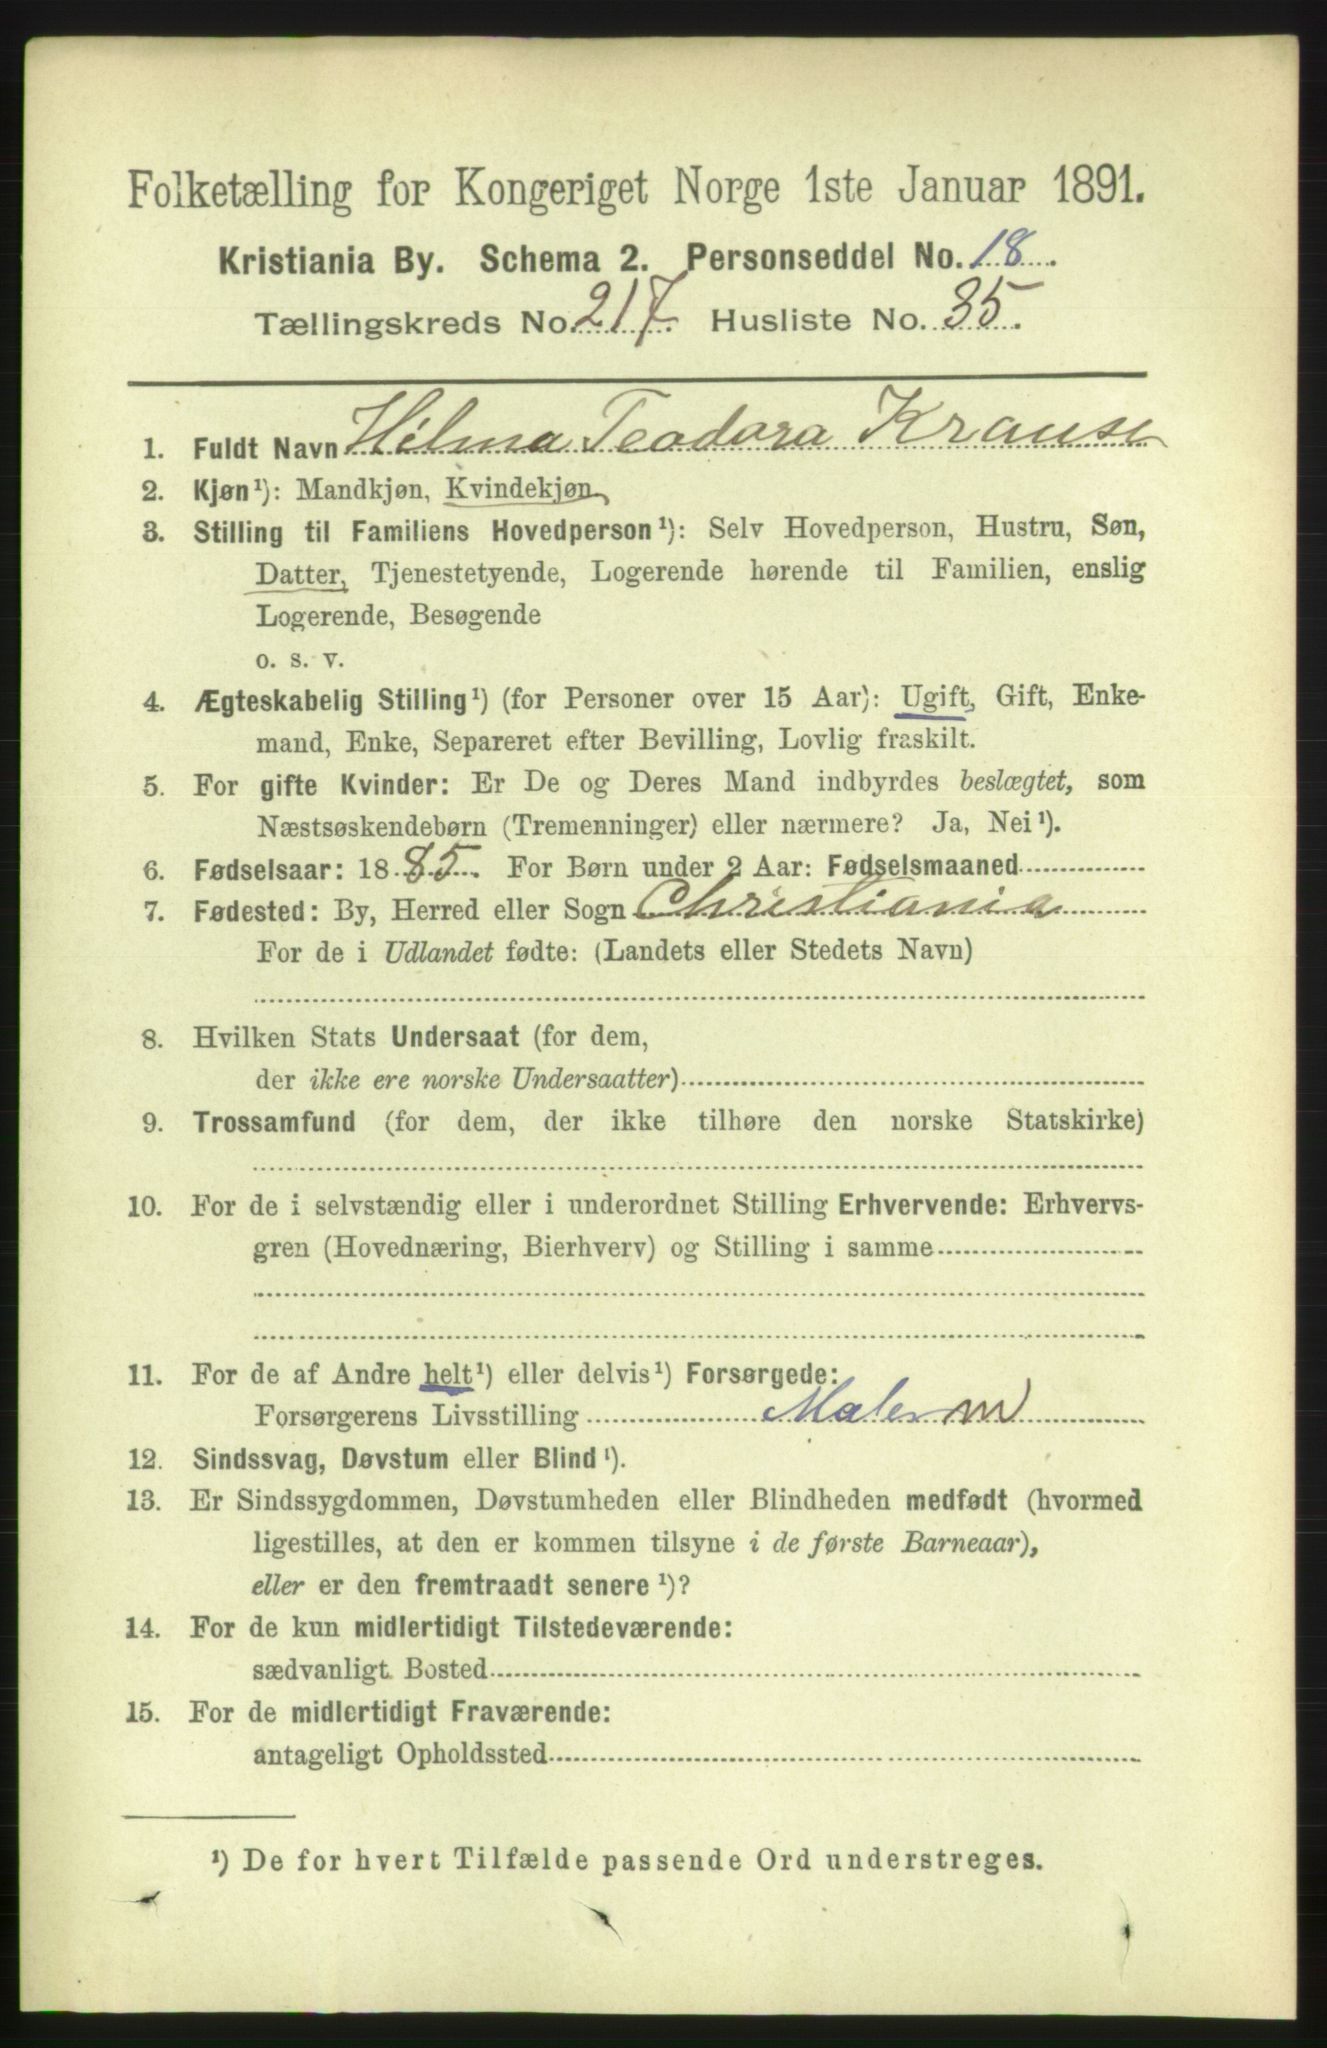 Folketælling for Kongeriget Norge 1ste Januar 1891.
Kristiania By. Schema 2. Personseddel No. 18.
Tællingskreds No. 217. Husliste No. 35.
1. Fuldt Navn Hilma Teodora Krause
2. Kjøn¹): Mandkjøn, Kvindekjøn,
3. Stilling til Familiens Hovedperson¹): Selv Hovedperson, Hustru, Søn,
Datter, Tjenestetyende, Logerende hørende til Familien, enslig
Logerende, Besøgende
o. s. v.
4. Ægteskabelig Stilling¹) (for Personer over 15 Aar): Ugift, Gift, Enke-
mand, Enke, Separeret efter Bevilling, Lovlig fraskilt.
5. For gifte Kvinder: Er De og Deres Mand indbyrdes beslægtet, som
Næstsøskendebørn (Tremenninger) eller nærmere? Ja, Nei¹).
6. Fødselsaar: 1885. For Børn under 2 Aar: Fødselsmaaned
7. Fødested: By, Herred eller Sogn Christiania
For de i Udlandet fødte: (Landets eller Stedets Navn)
8. Hvilken Stats Undersaat (for dem,
der ikke ere norske Undersaatter)
9. Trossamfund (for dem, der ikke tilhøre den norske Statskirke)
10. For de i selvstændig eller i underordnet Stilling Erhvervende: Erhvervs-
gren (Hovednæring, Bierhverv) og Stilling i samme
11. For de af Andre helt¹) eller delvis¹) Forsørgede:
Forsørgerens Livsstilling Maler m
12. Sindssvag, Døvstum eller Blind¹).
13. Er Sindssygdommen, Døvstumheden eller Blindheden medfødt (hvormed
ligestilles, at den er kommen tilsyne i de første Barneaar),
eller er den fremtraadt senere¹)?
14. For de kun midlertidigt Tilstedeværende:
sædvanligt Bosted
15. For de midlertidigt Fraværende:
antageligt Opholdssted
¹) De for hvert Tilfælde passende Ord understreges.